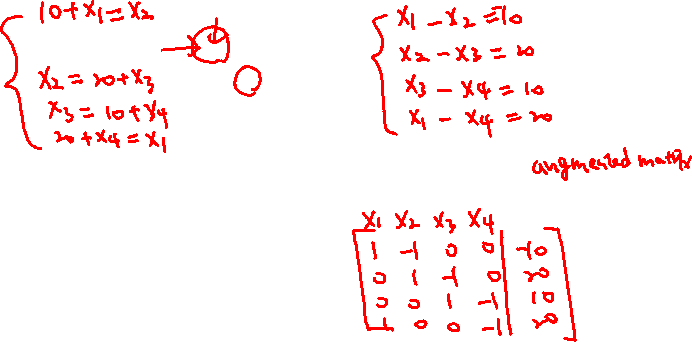 10+x1=x2
x2=20+x3
x3=10+x4
20+x4=x1
x1-x2=-10
x2-x3=20
x3-x4=10
x1-x4=20
augmented matrix
x1 x2 x3 x4
1 -1 0 0 -10
0 1 -1 0 20
0 0 1 -1 10
1 0 0 -1 20